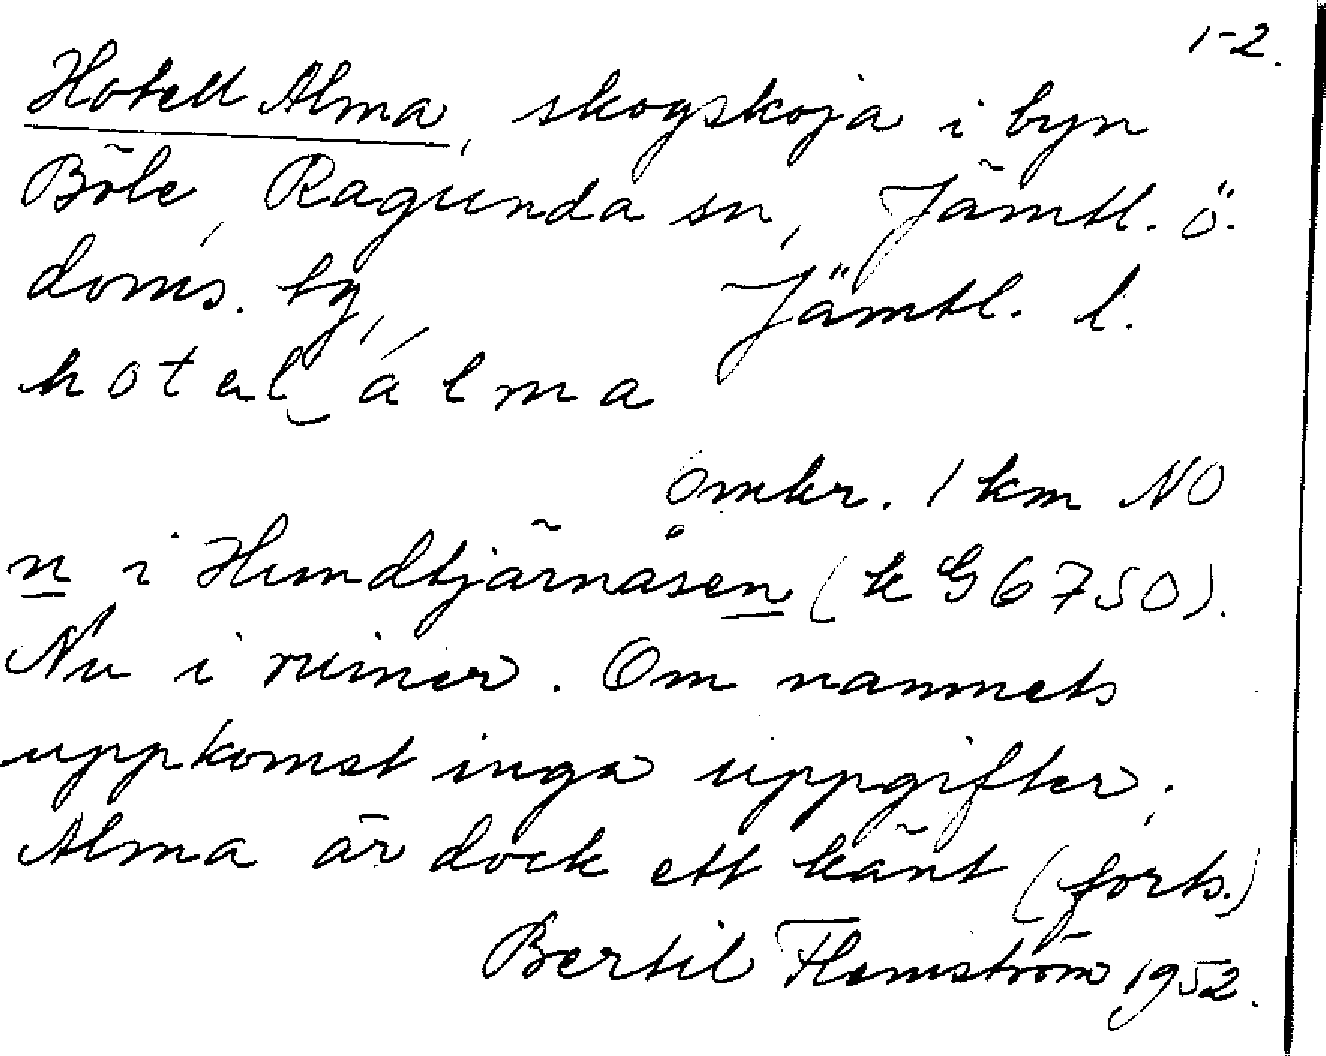 1-2.
Hotell Alma, skogskoja i byn
Böle, Ragunda sn, Jämtl. ö.
doms. tg, Jämtl. l.
hotel‿álma
omkr. 1 km NO
n i Hundtjärnåsen (k G 6750).
Nu i ruiner. Om namnets
uppkomst inga uppgifter;
Alma är dock ett känt (forts.)
Bertil Flemström 1952.